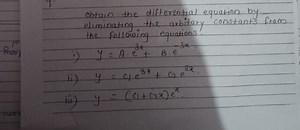 obtain the differential equation by
eliminating the arbitary constants from
the following equations
i) y = A e^3x + B e^-3x
ii) y = c₁ e^3x + c₂ e^2x
iii) y = (c₁ + c₂x) e^x